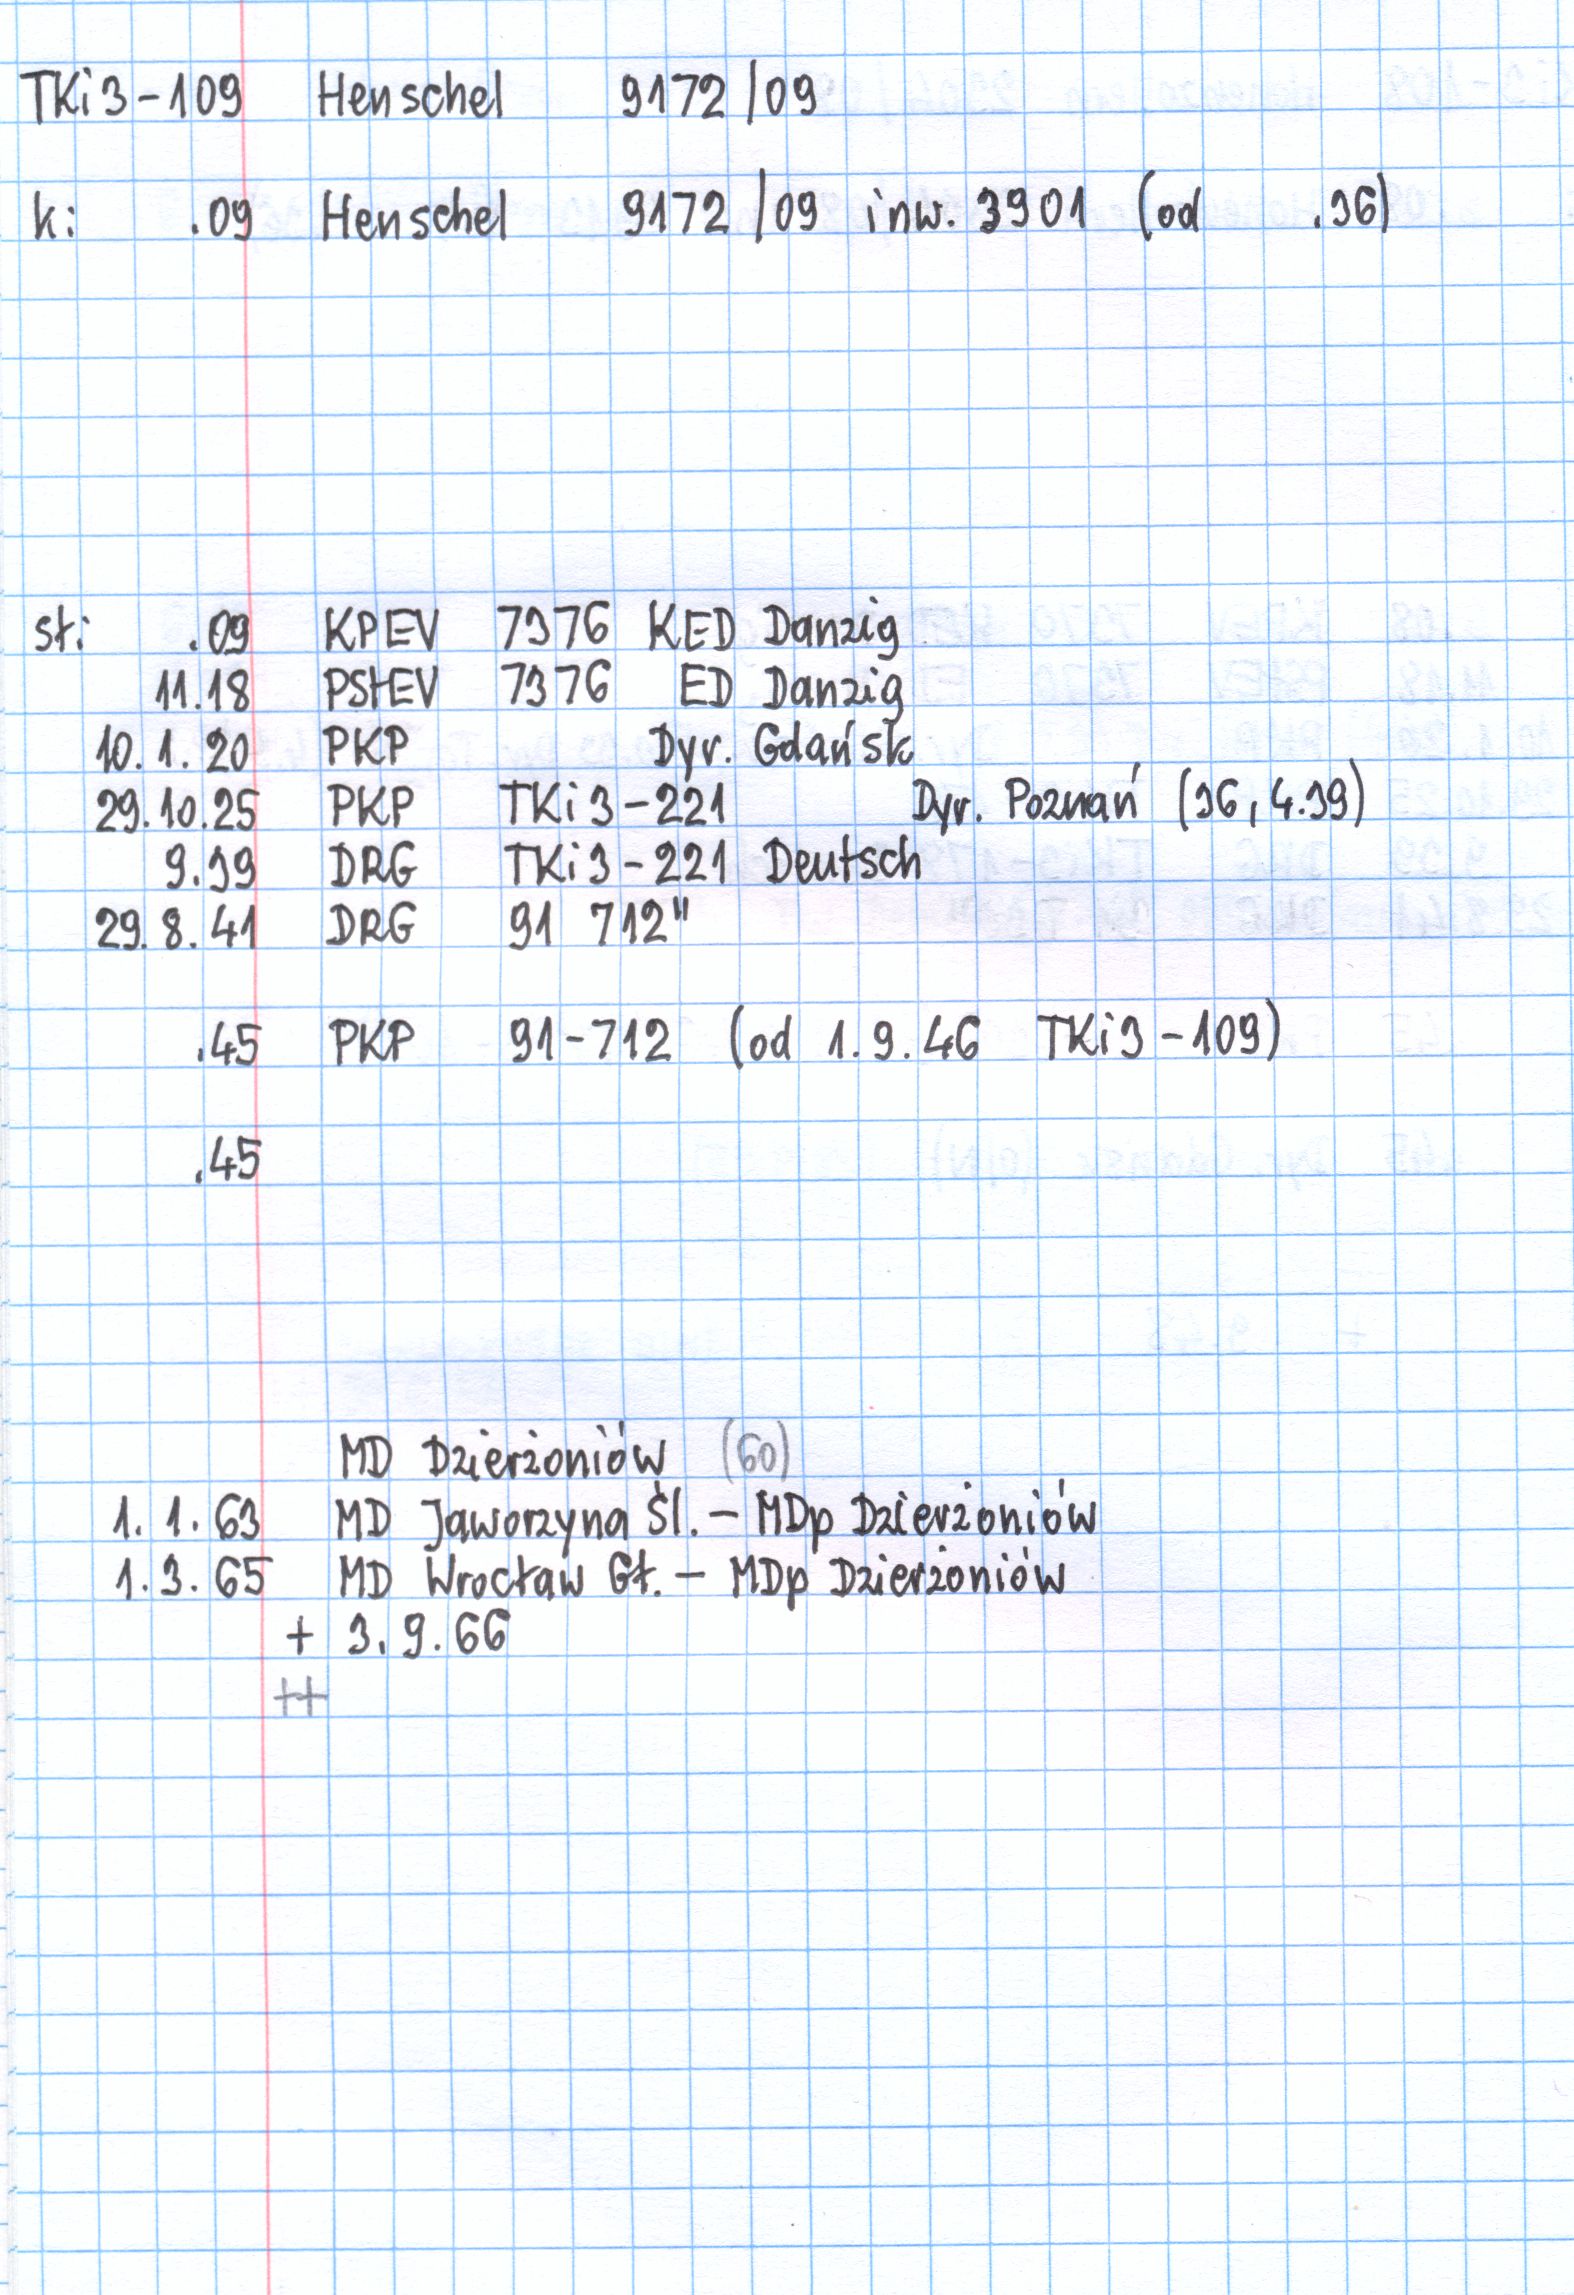 TKi3-109 Henschel 9172/09
k: .09 Henschel 9172/09 inw. 3901 (od .36)
st: .09 KPEV 7376 KED Danzig
11.18 PStEV 7376 ED Danzig
10.1.20 PKP Dyr. Gdańsk
29.10.25 PKP TKi3-221 Dyr. Poznań (36, 4.39)
9.39 DRG TKi3-221 Deutsch
29.8.41 DRG 91 712"
.45 PKP 91-712 (od 1.9.46 TKi3-109)
.45
MD Dzierżoniów (60)
1.1.63 MD Jaworzyna Śl. - MDp Dzierżoniów
1.3.65 MD Wrocław Gł. - MDp Dzierżoniów
+ 3.9.66
++